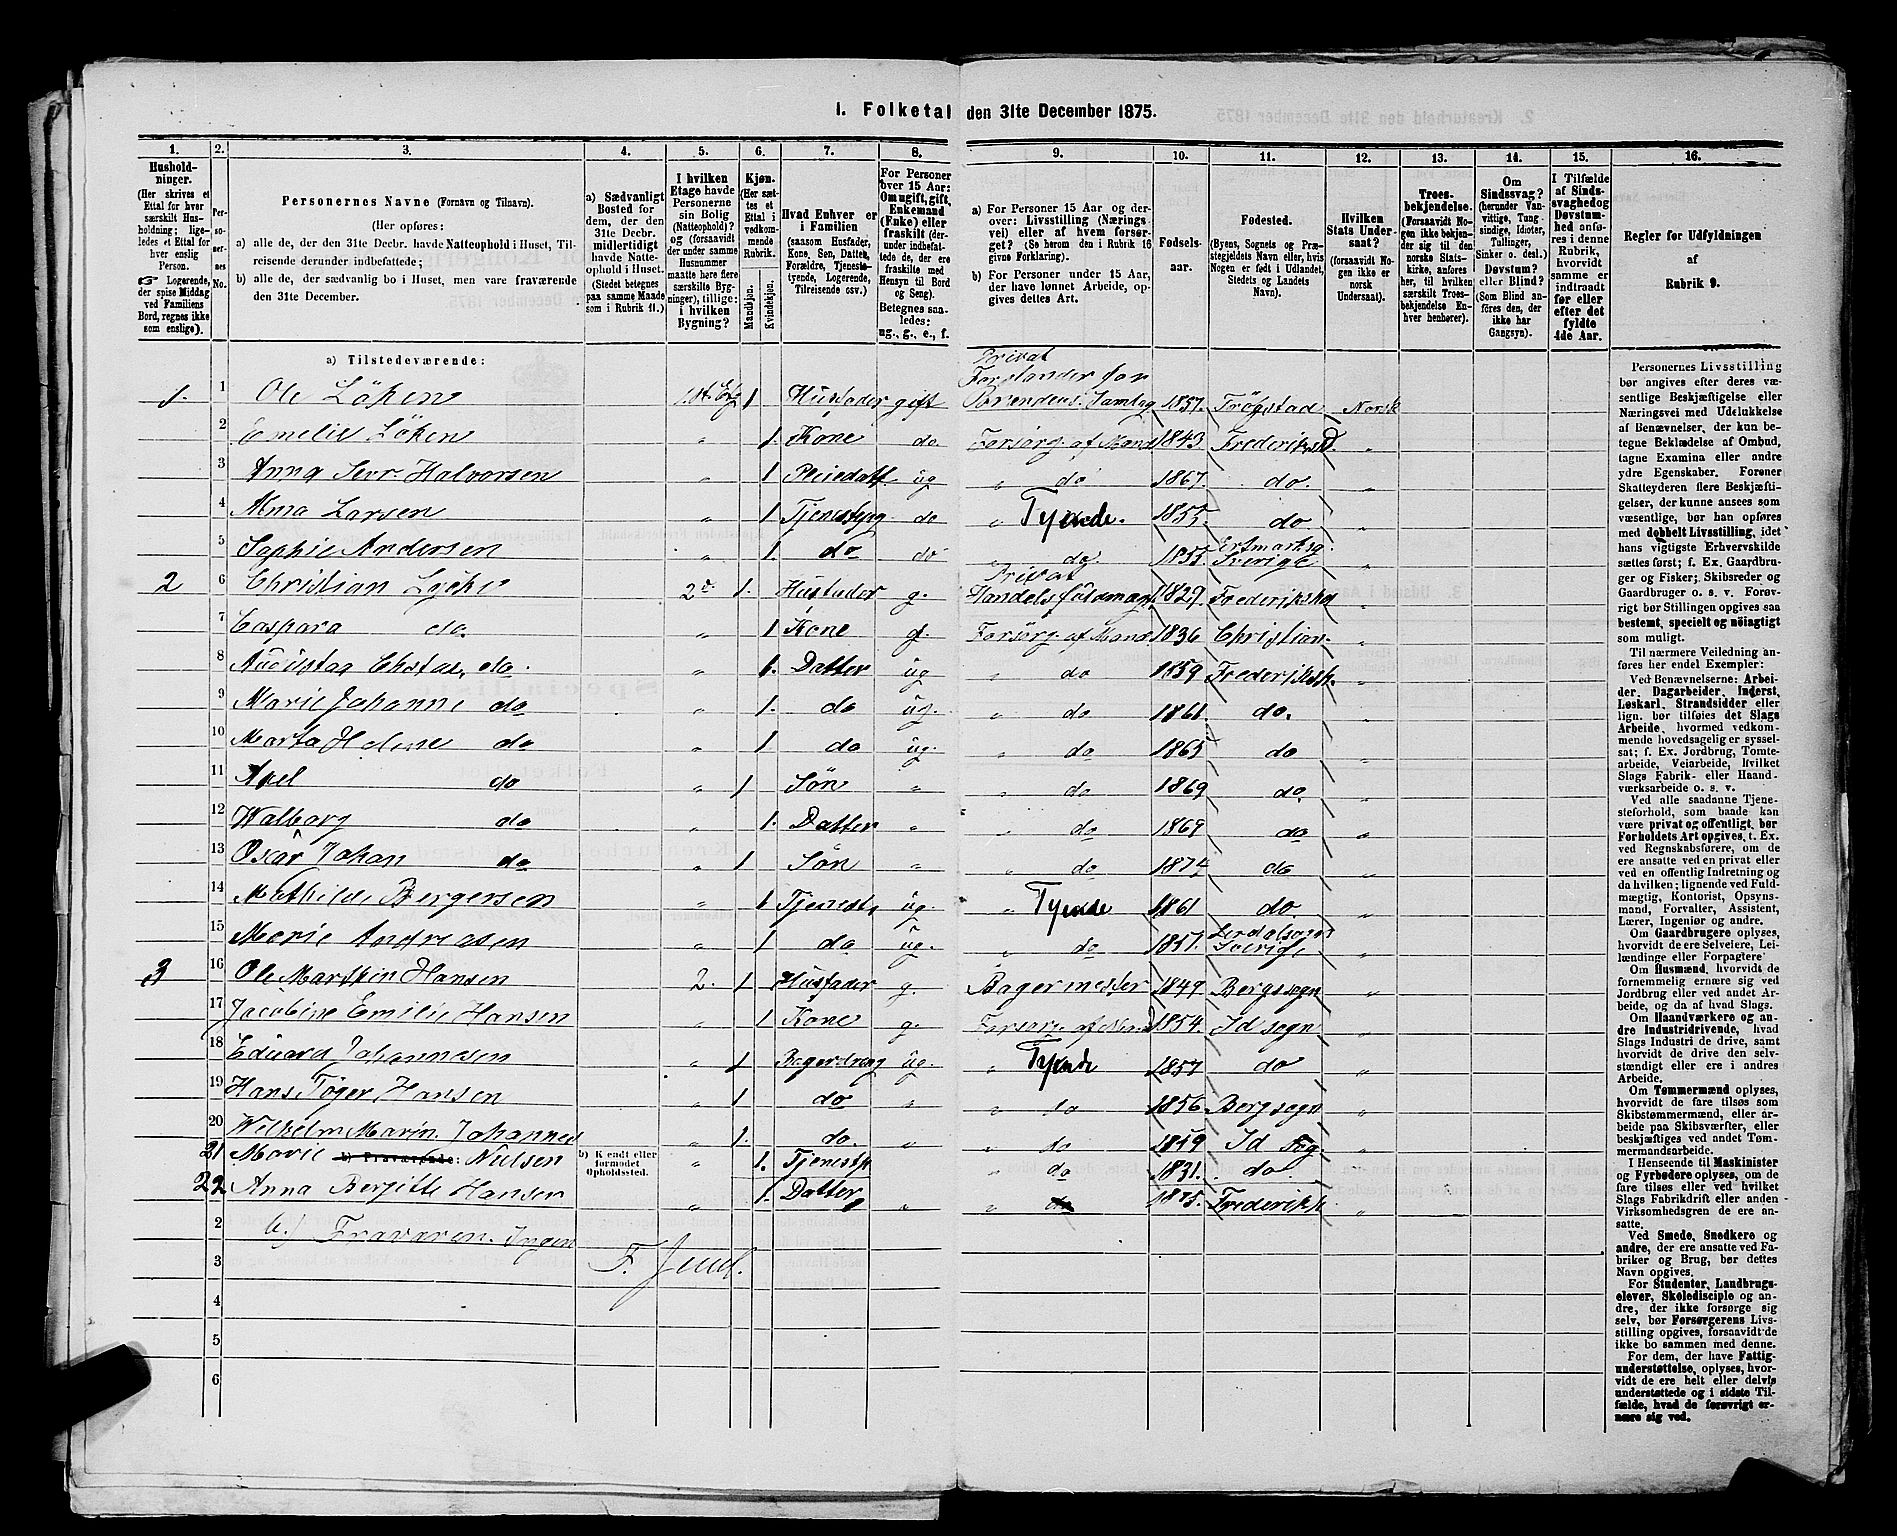 I. Folketal den 31te December 1875.
1. 2. 3. 4. 5. 6. 7. 8. 9. 10. 11. 12. 13. 14. 15. 16.
Husholdninger. (Her skrives et Ettal for hver særskilt Husholdning; ligeledes et Ettal for hver enslig Person. Logerende, der spise Middag ved Familiens Bord, regnes ikke som enslige).
Personernes No.
Personernes Navne (Fornavn og Tilnavn).
(Her opføres:
a) alle de, der den 31te Decbr. havde Natteophold i Huset, Tilreisende derunder indbefattede;
b) alle de, der sædvanlig bo i Huset, men vare fraværende den 31te December.
a) Sædvanligt Bosted for dem, der den 31te Decbr. midlertidigt havde Natteophold i Huset. (Stedet betegnes paa samme Maade som i Rubrik 11.)
I hvilken Etage havde Personerne sin Bolig (Natteophold)? og (forsaavidt der under samme Husnummer maatte høre flere særskilte Bygninger), tillige: i hvilken Bygning?
Kjøn. (Her sættes et Ettal i vedkommende Rubrik.
Mandkjøn. Kvindekjøn.
Hvad Enhver er i Familien (saasom Husfader, Kone, Søn, Datter, Forældre, Tjenestetyende, Logerende, Tilreisende osv.)
For Personer over 15 Aar: Om ugift, gift, Enkemand (Enke) eller fraskilt (derunder indbefattede de, der ere fraskilte med Hensyn til Bord og Seng). Betegnes saaledes: ug., g., e., f.
a) For Personer 15 Aar og derover: Livsstilling (Næringsvei) eller af hvem forsørget? (Se herom den i Rubrik 16 givne Forklaring).
b) For Personer under 15 Aar, der have lønnet Arbeide, opgives dettes Art.
Fødselsaar.
Fødested. (Byens, Sognets og Præstegjeldets Navn eller, hvis Nogen er født i Udlandet, Stedets og Landets Navn).
Hvilken Stats Undersaat? (forsaavidt Nogen ikke er norsk Undersaat).
Troesbekjendelse. (Forsaavidt Nogen ikke bekjender sig til den norske Statskirke, anføres her, til hvilken særskilt Troesbekjendelse Enhver henhører).
Om Sindssvag? (herunder Vanvittige, Tungsindige, Idioter, Tullinger, Sinker o. desl.) Døvstum? eller Blind? (Som Blind anføres den, der ikke har Gangsyn).
I Tilfælde af Sindssvaghed og Døvstumhed anføres i denne Rubrik, hvorvidt samme er indtraadt før eller efter det fyldte 4de Aar.
Regler for Udfyldningen af Rubrik 9.
a) Tilstedeværende:
1. 1 Ole Løken 1 Husfader gift Privat Forstander for 1857. Trøgstad Norsk
2 Emelie Løken „ 1. Kone do. Forsørg. af Mand 1843. Frederiksd „
3 Anna Sevr. Halvorsen „ 1 Pleiedatt ug „ do 1867. do. „
4 Alma Larsen „ 1 do „ Tyende. 1855 do „
5 Sophie Andersen „ 1. do do „ do. 1855 Sverige „
2 6 Christian Lyche 2d. 1. Husfader g. Privat 1829. „
7 Caspara do. „ 1 Kone g. Forsørg. af Mand 1836 Christian. „
8 do. „ 1. Datter ug „ do 1859 „
9 Marie Johanne do „ 1. do ug. „ do 1861. do. „
10 Marta do „ 1 do ug. „ do 1865 do „
11 Axel do „ 1 Søn „ „ do 1869 do. „
12 Walborg do „ 1. Datter „ „ do 1869 do „
13 Oscar Johan do „ 1 Søn „ „ do 1874 do „
14 Mathilde Bergersen „ 1 Tjenestp ug. „ Tyende 1861 do. „
15 Marie Andreasen „ 1 do ug. „ do 1857. Sverige „
3 16 Ole Martin Hansen 2. 1 Husfader g. Bagermester 1849 Bergsogn „
17 Jacobine Emilie Hansen „ 1 Kone g. Forsørg. af Mand 1854. Idsogn „
18 Eduard Johannesen „ 1 Bagerdreng ug. „ Tyende 1857 do „
19 Hans Tøger Hansen „ 1 do „ „ do 1856 Bergsogn „
20 Wilhelm Marin. Johannes „ 1. do. „ „ do 1859 Id Sog. „
21 Marie b) Fraværende: Nielsen b) Kendt eller formodet Opholdssted. „ 1. Tjenestp „ do 1831. do. „
22 Anna Bergitte Hansen „ 1. Datter „ „ do 1875. Frederikh „
2 b.) Fraværen. Ingen
3
4
5
6
Personernes Livsstilling bør angives efter deres væsentlige Beskjæftigelse eller Næringsvei med Udelukkelse af Benævnelser, der kun betegne Beklædelse af Ombud, tagne Examina eller andre ydre Egenskaber. Forener Skatteyderen flere Beskjæftigelser, der kunne ansees som væsentlige, bør han opføres med dobbelt Livsstilling, idet hans vigtigste Erhvervskilde sættes først; f. Ex. Gaardbruger og Fisker; Skibsreder og Gaardbruger o. s. v. Forøvrigt bør Stillingen opgives saa bestemt, specielt og nøiagtigt som muligt.
Til nærmere Veiledning anføres her endel Exempler:
Ved Benævnelserne: Arbeider, Dagarbeider, Inderst, Løskarl, Strandsidder eller lign. bør tilføies det Slags Arbeide, hvormed vedkommende hovedsagelig er sysselsat; f. Ex. Jordbrug, Tomtearbeide, Veiarbeide, hvilket Slags Fabrik- eller Haandværksarbeide o. s. v.
Ved alle saadanne Tjenesteforhold, som baade kan være privat og offentligt, bør Forholdets Art opgives, t. Ex. ved Regnskabsførere, om de ere ansatte ved en privat eller ved en offentlig Indretning og da hvilken; lignende ved Fuldmægtig, Kontorist, Opsynsmand, Forvalter, Assistent, Lærer, Ingeniør og andre.
Om Gaardbrugere oplyses, hvorvidt de ere Selveiere, Leilændinge eller Forpagtere
Om Husmænd, hvorvidt de fornemmelig ernære sig ved Jordbrug eller ved andet Arbeide, og da af hvad Slags.
Om Haandværkere og andre Industridrivende, hvad Slags Industri de drive, samt hvorvidt de drive den selvstændigt eller ere i andres Arbeide.
Om Tømmermænd oplyses, hvorvidt de fare tilsøs som Skibstømmermænd, eller arbeide paa Skibsværfter, eller beskjæftiges ved andet Tømmermandsarbeide.
I Henseende til Maskinister og Fyrbødere oplyses, om de fare tilsøs eller ved hvilket Slags Fabrikdrift eller anden Virksomhedsgren de ere ansatte.
Ved Smede, Snedkere og andre, der ere ansatte ved Fabriker og Brug, bør dettes Navn opgives.
For Studenter, Landbrugselever, Skoledisciple og andre, der ikke forsørge sig selv, bør Forsørgerens Livsstilling opgives, forsaavidt de ikke bo sammen med denne.
For dem, der have Fattigunderstøttelse, oplyses, hvorvidt de ere helt eller delvis understøttede og i sidste Tilfælde, hvad de forøvrigt ernære sig ved.